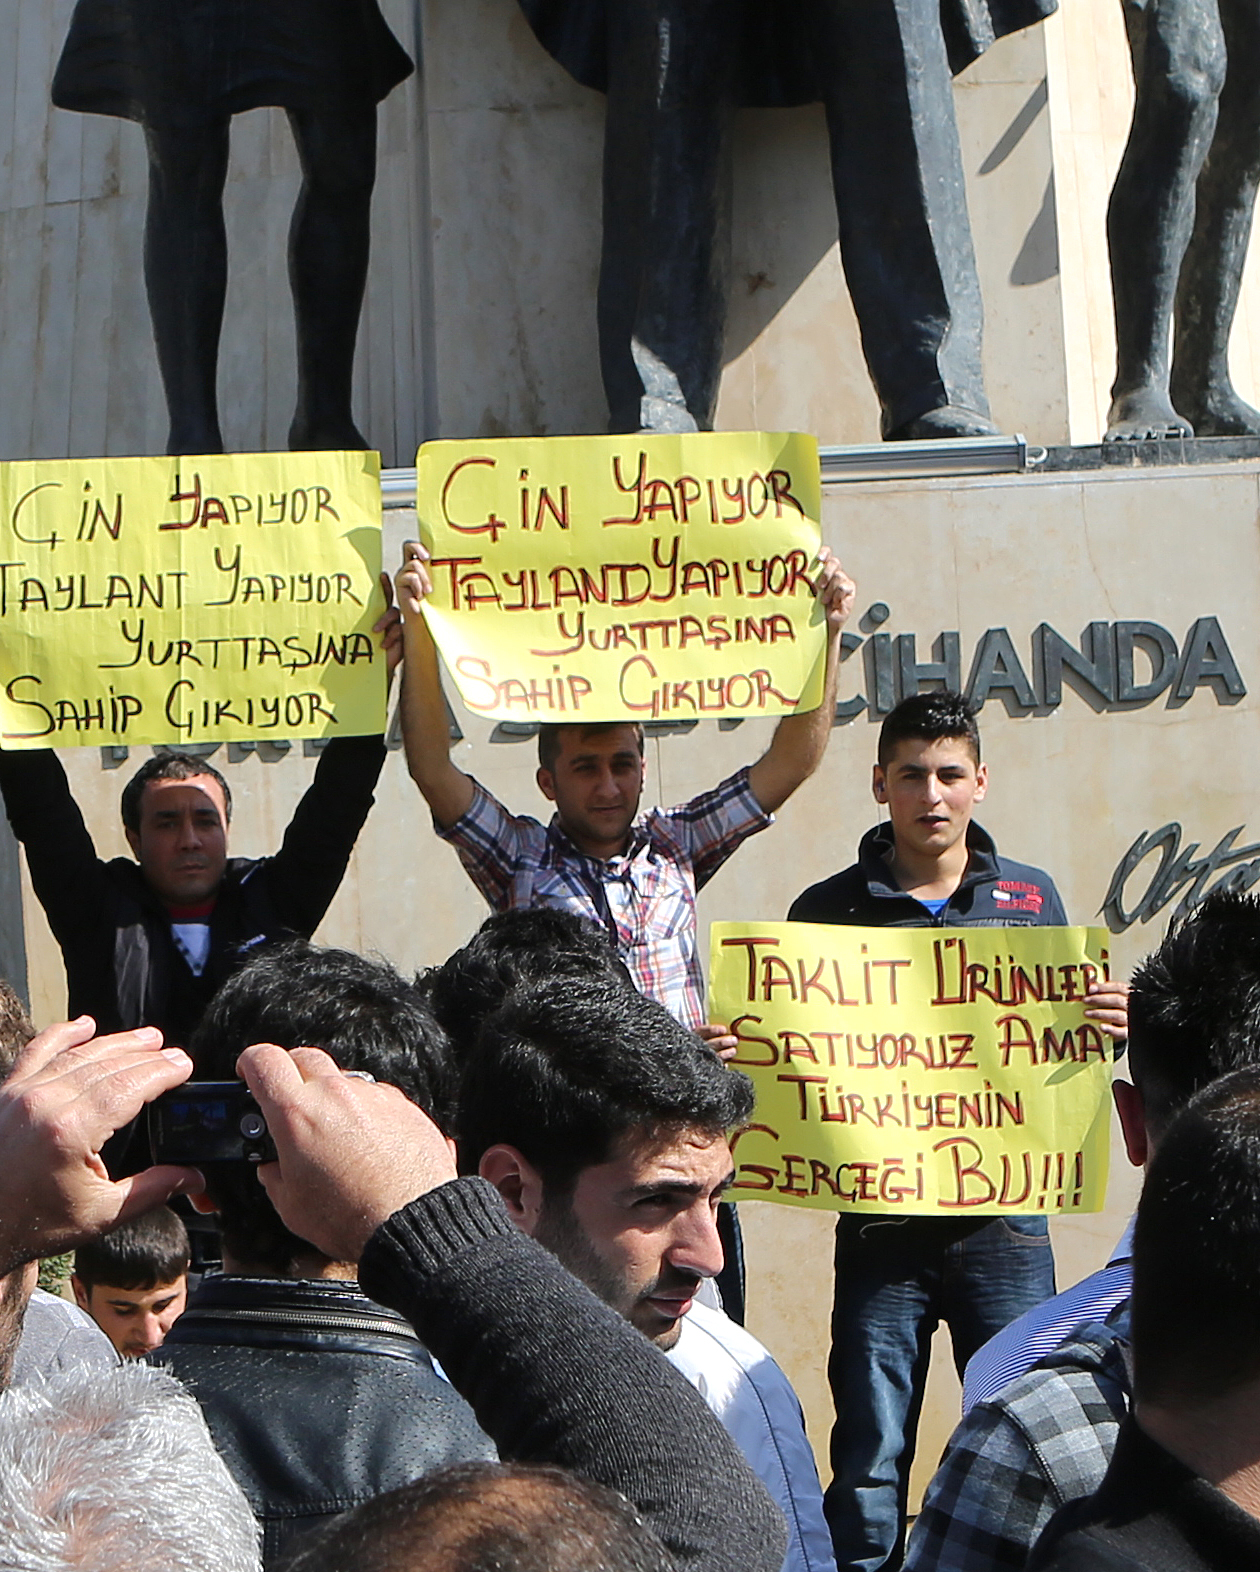 ÇİN YAPIYOR
TAYLANT YAPIYOR
YURTTAŞINA
SAHİP ÇIKIYOR
ÇİN YAPIYOR
TAYLAND YAPIYOR
YURTTAŞINA
SAHİP ÇIKIYOR
CİHANDA
TAKLİT ÜRÜNLERİ
SATIYORUZ AMA
TÜRKİYENİN
GERÇEĞİ BU!!!